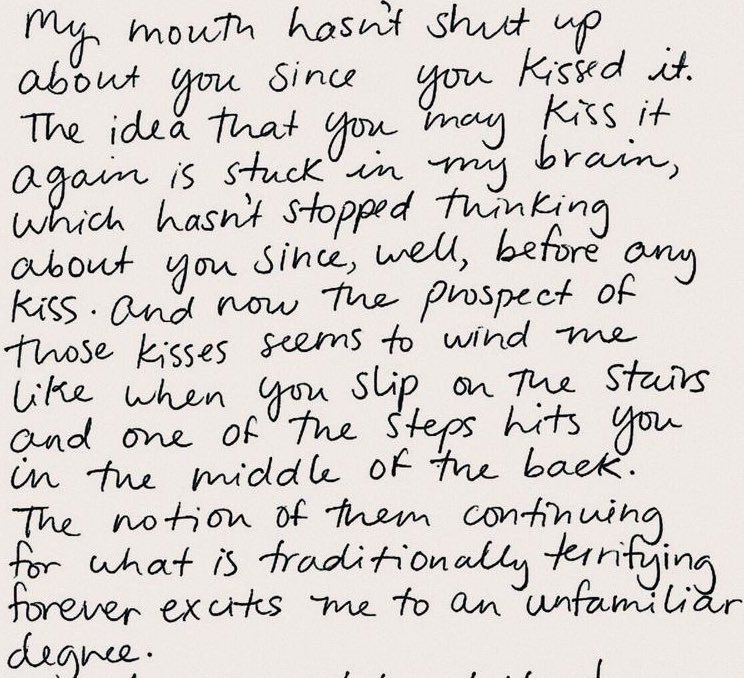 My mouth hasn't shut up
about you since you kissed it.
The idea that you may kiss it
again is stuck in my brain,
which hasn't stopped thinking
about you since, well, before any
kiss. And now the prospect of
those kisses seems to wind me
like when you slip on the stairs
and one of the steps hits you
in the middle of the back.
The notion of them continuing
for what is traditionally terrifying
forever excites me to an unfamiliar
degree.